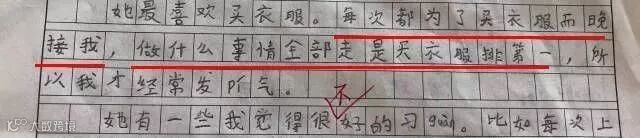 她最喜欢买衣服。每次都为了买衣服而晚
接我，做什么事情全部走是买衣服排第一，所
以我才经常发pí气。
不
她有一些我觉得很好的习guàn。比如每次上
10%大跨境